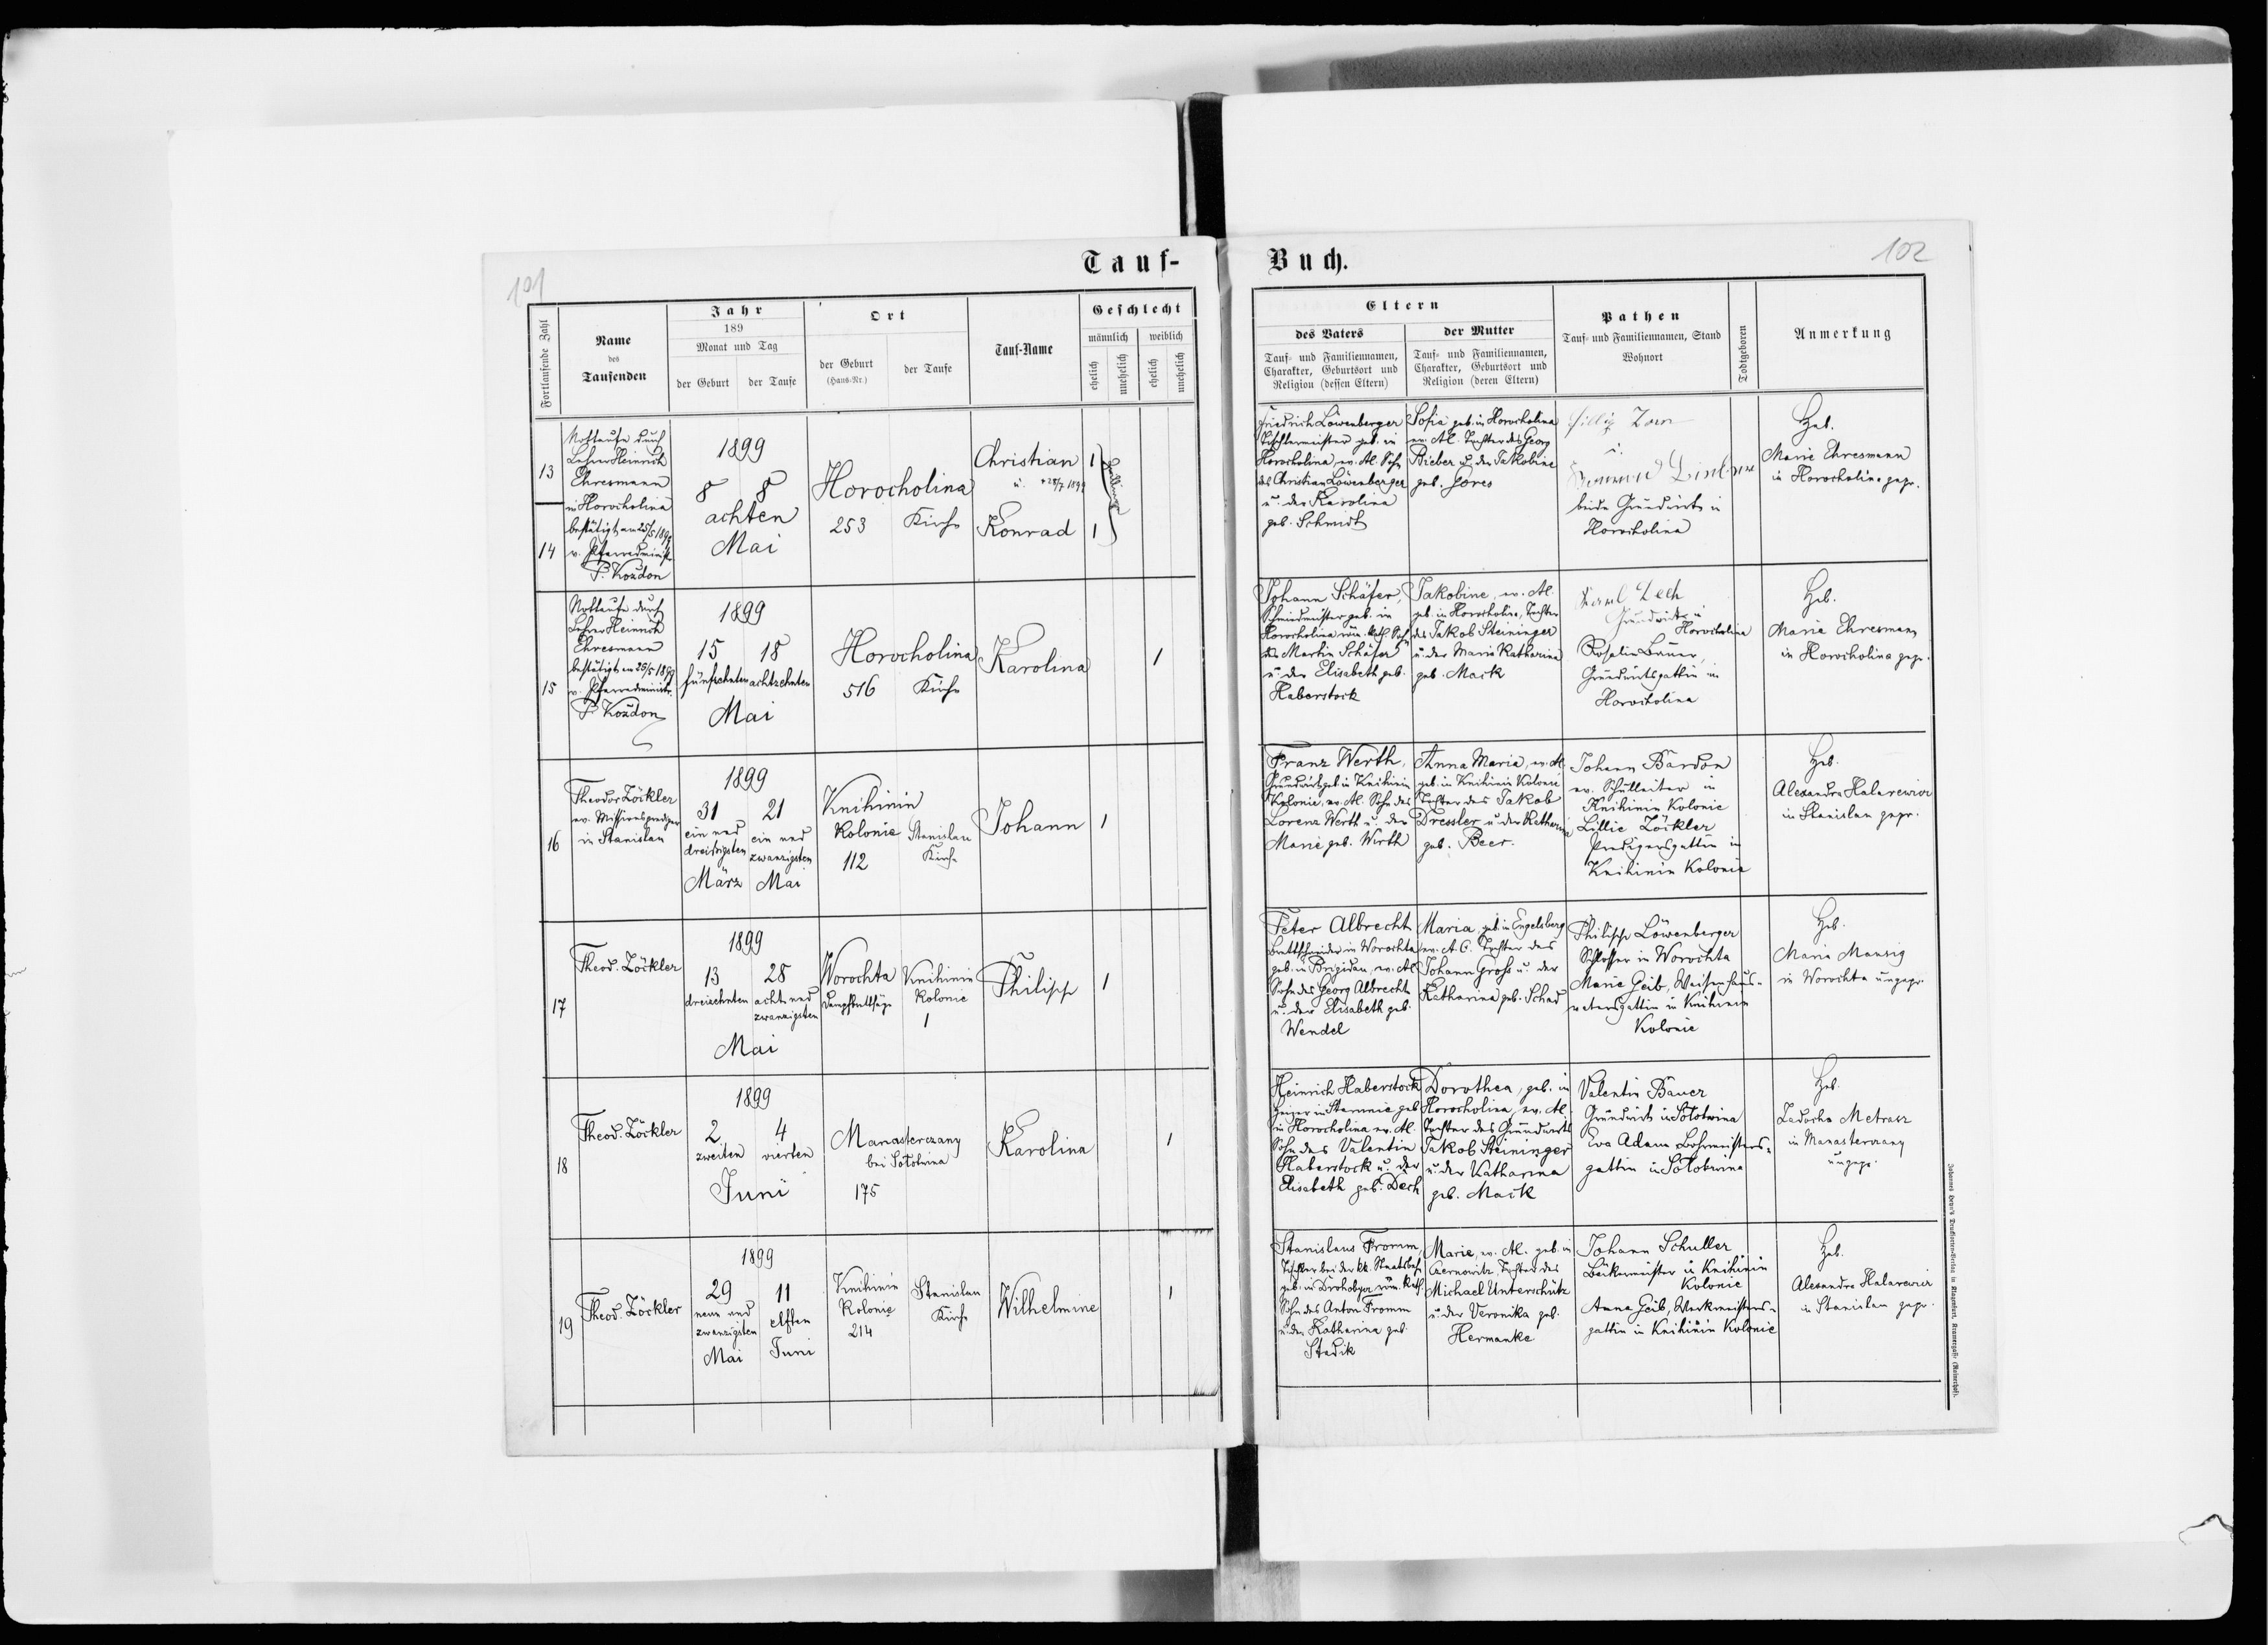 101
Tauf-
Fortlaufende Zahl
Name
des
Taufenden
Jahr
189
Monat und Tag
der Geburt
der Taufe
Ort
der Geburt
(Haus-Nr.)
der Taufe
Tauf-Name
Geschlecht
männlich
weiblich
ehelich
unehelich
ehelich
unehelich
13
14
Nottaufe durch
Lehrer Heinrich
Ehresmann
in Horocholina
bestätigt am 25/5 1899
v. Pfarradministr.
P. Kozdon
1899
8 8
achten
Mai
Horocholina
253 Kirche
Christian 1
u. + 28/7 1899
Konrad 1
Zwillinge
15
Nottaufe durch
Lehrer Heinrich
Ehresmann
bestätigt am 25/5 1899
v. Pfarradministr.
P. Kozdon
1899
15 18
fünfzehnten achtzehnten
Mai
Horocholina
516 Kirche
Karolina
1
16
Theodor Zöckler
ev. Missionsprediger
in Stanislau
1899
31 21
ein und
dreißigsten
März
ein und
zwanzigsten
Mai
Knihinin
Kolonie
112
Stanislau
Kirche
Johann
1
17
Theod. Zöckler
1899
13 28
dreizehnten
acht und
zwanzigsten
Mai
Worochta
Dampfbrettsäge
Knihinin
Kolonie
1
Philipp
1
18
Theod. Zöckler
1899
2 4
zweiten vierten
Juni
Manasterczany
bei Sołotwina
175
Karolina
1
19
Theod. Zöckler
1899
29 11
neun und
zwanzigsten
Mai
elften
Juni
Knihinin
Kolonie
214
Stanislau
Kirche
Wilhelmine
1
Buch.
102
Eltern
des Vaters
Tauf- und Familiennamen,
Charakter, Geburtsort und
Religion (dessen Eltern)
der Mutter
Tauf- und Familiennamen,
Charakter, Geburtsort und
Religion (deren Eltern)
Pathen
Tauf- und Familiennamen, Stand
Wohnort
Todtgeboren
Anmerkung
Friedrich Löwenberger
Tischlermeister geb. in
Horocholina, ev. AC. Sohn
des Christian Löwenberger
u. der Karolina
geb. Schmidt
Sofia geb. in Horocholina
ev. AC. Tochter des Georg
Bieber u. der Jakobine
geb. Jores
Zorn
u.
beide Grundwirte in
Horocholina
Heb.
Marie Ehresmann
in Horocholina gepr.
Johann Schäfer,
Schmiedmeister geb. in
Horocholina röm. kath. Sohn
des Martin Schäfer
u. der Elisabeth geb.
Haberstock
Jakobine, ev. AC.
geb. in Horocholina, Tochter
des Jakob Steininger
u. der Maria Katharina
geb. Mack
Karl Dech
Grundwirt in
Horocholina
Rosalie Bauer,
Grundwirtsgattin in
Horocholina
Heb.
Maria Ehresmann
in Horocholina gepr.
Franz Werth,
Grundwirt geb. in Knihinin
Kolonie, ev. AC. Sohn des
Lorenz Werth u. der
Marie geb. Wirth
Anna Maria, ev. AC
geb. in Knihinin Kolonie
Tochter des Jakob
Dressler u. der Katharina
geb. Beer.
Johann Bardon
ev. Schulleiter in
Knihinin Kolonie
Lillie Zöckler
Predigersgattin in
Knihinin Kolonie
Heb.
Alexandra Halarewicz
in Stanislau gepr.
Peter Albrecht
Brettschneider in Worochta
geb. in Brigidau, ev. AC
Sohn des Georg Albrecht
u. der Elisabeth geb.
Wendel
Maria, geb. in Engelsberg
ev. A. C. Tochter des
Johann Groß u. der
Katharina geb. Schad
Philipp Löwenberger
Schlosser in Worochta
Marie Geib, Waisenhaus-
vatersgattin in Knihinin
Kolonie
Heb.
Maria Mansig
in Worochta ungepr.
Heinrich Haberstock
Heizer in Starunia geb.
in Horocholina ev. AC.
Sohn des Valentin
Haberstock u. der
Elisabeth geb. Dech
Dorothea, geb. in
Horocholina, ev. AC.
Tochter des Grundwirts
Jakob Steininger
u. der Katharina
geb. Mack
Valentin Bauer
Grundwirt in Sołotwina
Eva Adam Bohrmeisters-
gattin in Sołotwina
Heb.
Zadocha Metrasz
in Manasterczany
ungepr.
Stanislaus Fromm,
Tischler bei der kk. Staatsbahn
geb. in Drohobycz röm. kath.
Sohn des Anton Fromm
u. der Katharina geb.
Stadik
Marie, ev. AC. geb. in
Czernowitz Tochter des
Michael Unterschütz
u. der Veronika geb.
Hermanke
Johann Schuller
Bäckermeister in Knihinin
Kolonie
Anna Geib, Werkmeisters-
gattin in Knihinin Kolonie
Heb.
Alexandra Halarewicz
in Stanislau gepr.
Johannes Heyn's Drucksorten-Verlag in Klagenfurt, Kramergasse (Rainerhof).